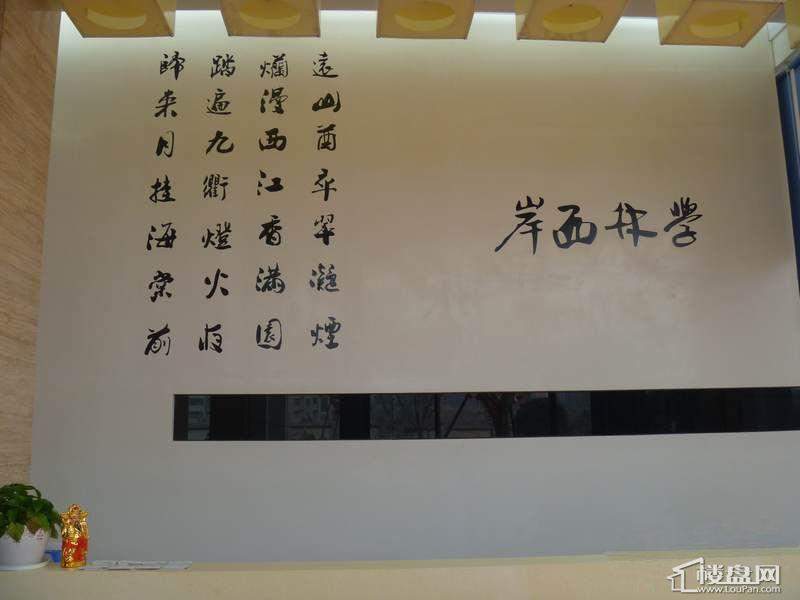 遠山酉卒翠凝煙
爛漫西江香滿園
踏遍九衢燈火夜
歸来月挂海棠前
学林西岸
楼盘网
www.LouPan.com